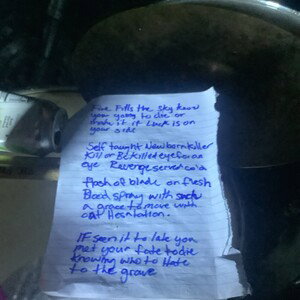 Fire Fills the sky know
your going to die or
make it if Luck is on
your side
Self taught Newborn killer
Kill or Be killed eye for an
eye Revenge served cold
flash of blade on flesh
Blood spray with such
a grace to move with
out Hesitation.
IF seen it to late you
met your fate to die
knowing who to Hate
to the grave